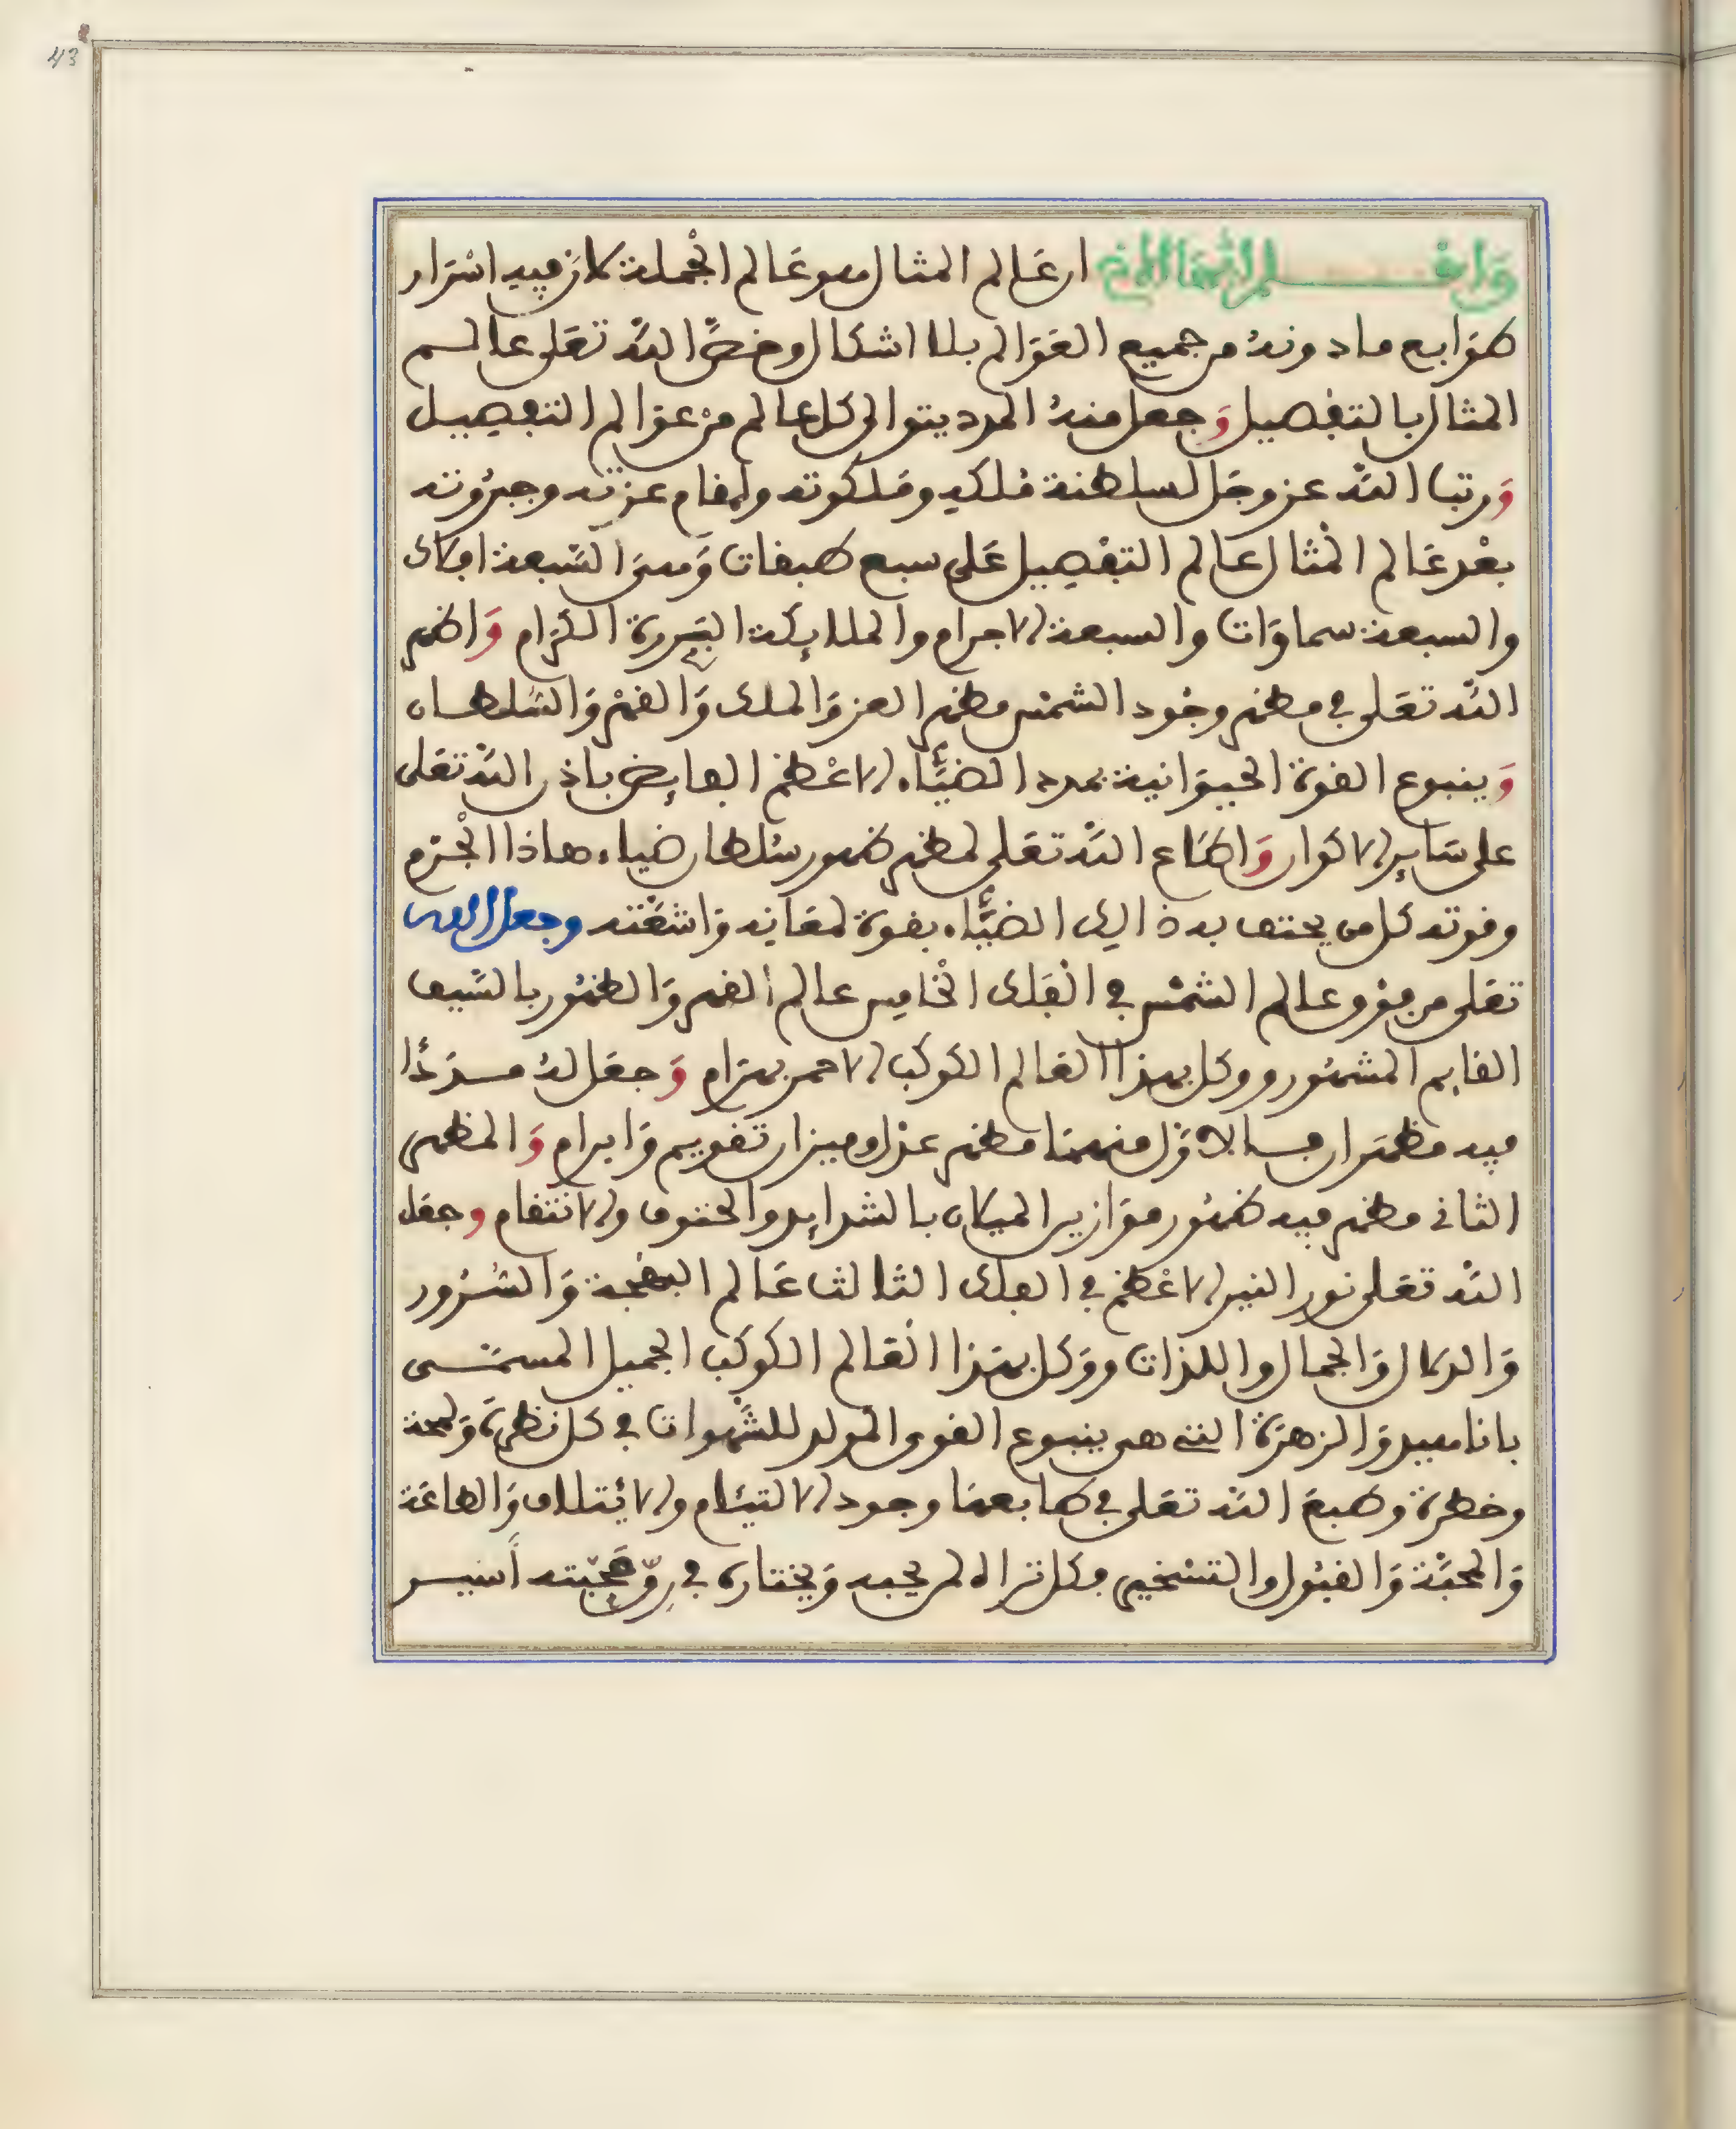 43
واعلم أيها الأخ ان عَالم المثال هو عَالم الجْملة كان فيه اسْرَار
طوَابع ما دونهُ من جميع العَوَالم بلا اشكال وخصَّ اللّه تعَلى عالم
المثال بالتفْصيل وَجعل منهُ المدد يتوالى لكل عالم منْ عوَالم التفصيل
وَرتب اللّه عز وجَل لسلطنة مُلكه ومَلكوته ولمقام عزته وجبرُوته
بعْد عَالم المْثال عَالم التفْصيل عَلى سبع طبقات وَهيَ السَّبعة افلاك
والسبعة سماوَات والسبعة الاجرام والملايكة البَررة الكرَام وَاظهر
اللّه تعَلى في مظهر وجُود الشمْس مظهر العز وَالملك وَالقهْر وَالسُّلطان
وَينبوع القوة الحيوَانية بمدد الضيَّاء الاعْظم الفايض باذن اللّه تعَلى
على سَاير الاكوار وَاطَاع اللّه تعَلى لمظهر ظهور سُلطان ضياء هاذا الجْرْم
وقوته كل من يحتف به ذالك الضيَّاء بقوة لمعَانه وَاشعَّته وجعل الله
تعَلى من فوْق عالم الشمْس في الْفَلك الخْامِس عالم القهر وَالظهُور بالسَّيف
القايم المشهُور ووكل بهذا العَالم الكوكب الاحمر بهرَام وَجعَل لهُ مددًا
فيه مظهَران فالاوَّل منهمَا مظهر عدْل وميزان تقويم وَابرام وَالمظهر
الثاني مظهر فيه ظهُور موَازين الميلان بالشدايد والحتوف والانتقام وجعَل
اللّه تعَلى نور النير الاعْظم في الفلك الثالث عَالم البهْجة وَالسُّرُور
وَالدلال وَالجمال واللذات ووَكل بهَذا الْعَالم الكوكَب الجميل المسمّى
باناهيد وَالزهرَة التي هي ينبوع القوى المْولد للشَّهوات في كل نظرة وَلمحة
وخطرة وطبعَ اللّه تعَلى في طابعهَا وجود الالتيَام والائتلاف وَالطاعَة
وَالمحبَّة وَالقبُول والتسْخير فكل تراه لمن يحبه وَيختاره في رِقّ محَبّته أسير